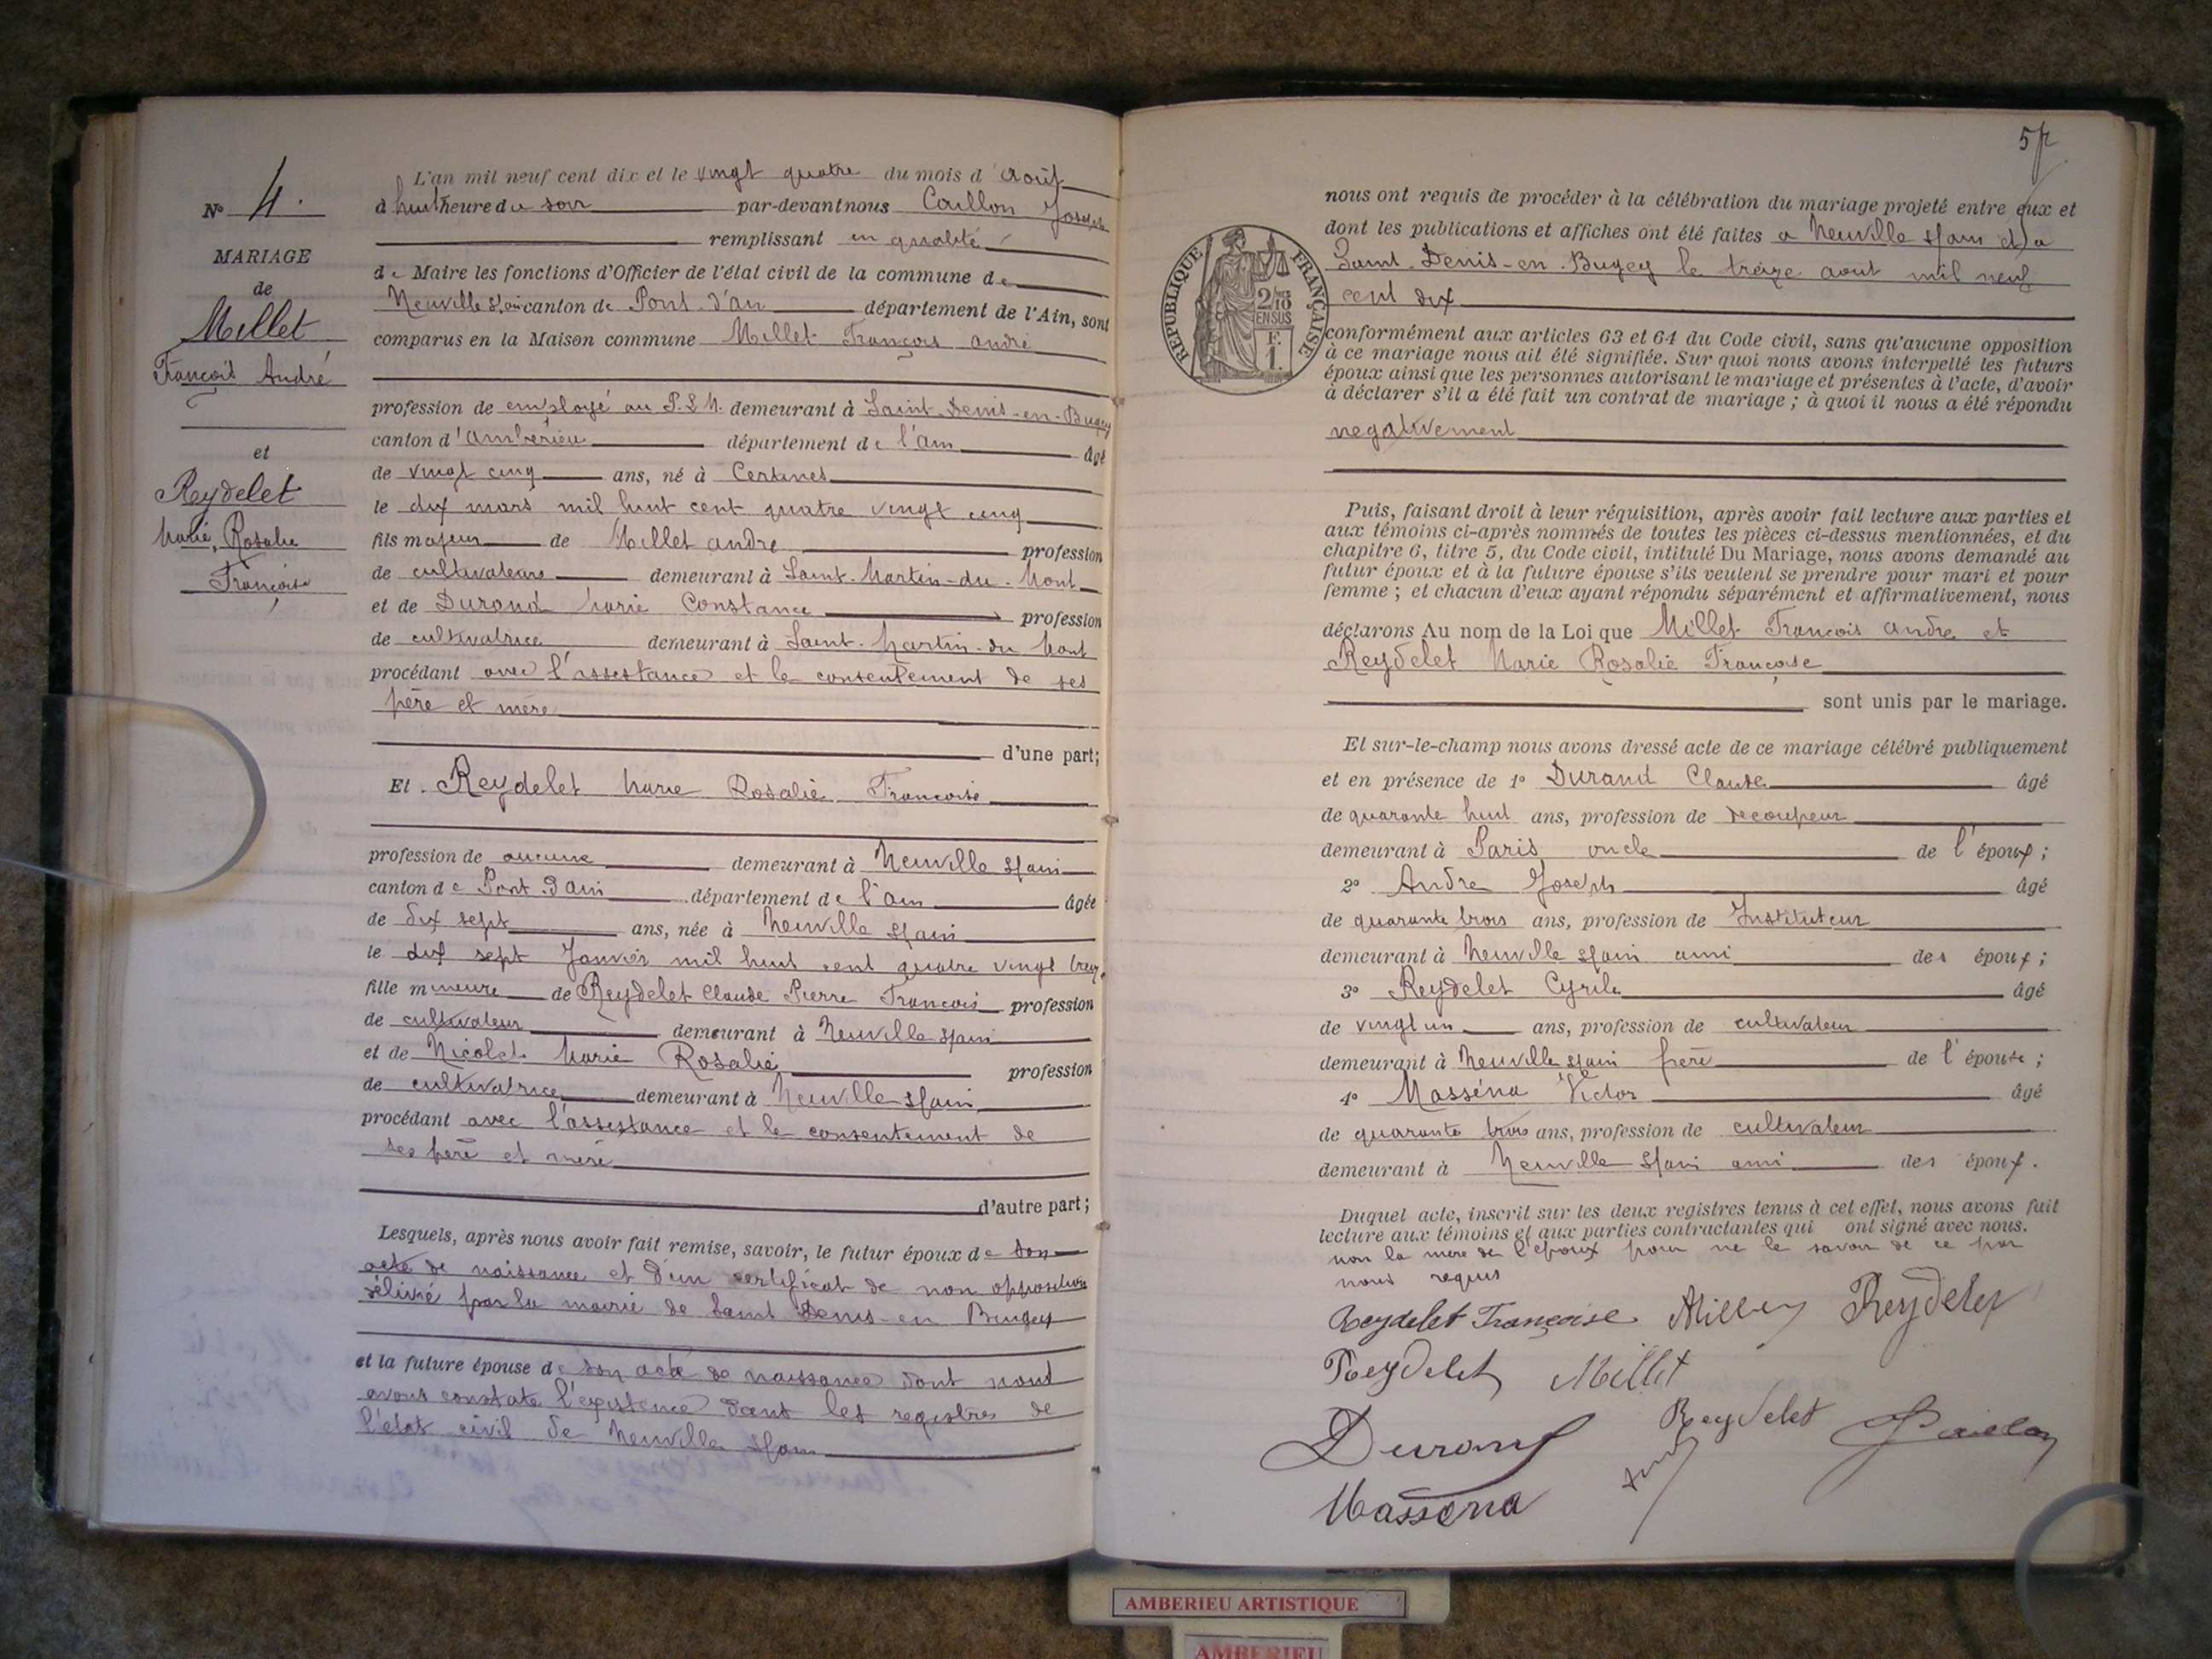 Nº 4.
MARIAGE
de
Millet
François André
et
Reydelet
Marie, Rosalie
Françoise
L'an mil neuf cent dix et le vingt quatre du mois d'août
à huit heure du soir par-devant nous Caillon Joseph
remplissant en qualité
de Maire les fonctions d'Officier de l'état civil de la commune de
Neuville s/ain canton de Pont d'ain département de l'Ain, sont
comparus en la Maison commune Millet François andré
profession de employé au P.L.M. demeurant à Saint-Denis-en-Bugey
canton d'ambérieu département de l'ain âgé
de vingt cinq ans, né à Certines
le dix mars mil huit cent quatre vingt cinq
fils majeur de Millet andre profession
de cultivateur demeurant à Saint-Martin-du-Mont
et de Durand Marie Constance profession
de cultivatrice demeurant à Saint-Martin-du Mont
procédant avec l'assistance et le consentement de ses
père et mère
d'une part;
Et Reydelet Marie Rosalie Françoise
profession de aucune demeurant à Neuville s/ain
canton de Pont d'ain département de l'ain âgée
de dix sept ans, née à Neuville s/ain
le dix sept Janvier mil huit cent quatre vingt treize
fille mineure de Reydelet Claude Pierre François profession
de cultivateur demeurant à Neuville s/ain
et de Nicolet Marie Rosalie profession
de cultivatrice demeurant à Neuville s/ain
procédant avec l'assistance et le consentement de
ses père et mère
d'autre part;
Lesquels, après nous avoir fait remise, savoir, le futur époux de son
acte de naissance et d'un certificat de non opposition
délivré par la mairie de Saint Denis-en Bugey
et la future épouse de son acte de naissance dont nous
avons constaté l'existence dans les registres de
l'état civil de Neuville s/ain
nous ont requis de procéder à la célébration du mariage projeté entre eux et
dont les publications et affiches ont été faites a Neuville s/ain et a
Saint-Denis-en-Bugey le treize aout mil neuf
cent dix
RÉPUBLIQUE FRANÇAISE
2/10 EN SUS
F. 1.
conformément aux articles 63 et 64 du Code civil, sans qu'aucune opposition
à ce mariage nous ait été signifiée. Sur quoi nous avons interpellé les futurs
époux ainsi que les personnes autorisant le mariage et présentes à l'acte, d'avoir
à déclarer s'il a été fait un contrat de mariage; à quoi il nous a été répondu
negativement
Puis, faisant droit à leur réquisition, après avoir fait lecture aux parties et
aux témoins ci-après nommés de toutes les pièces ci-dessus mentionnées, et du
chapitre 6, titre 5, du Code civil, intitulé Du Mariage, nous avons demandé au
futur époux et à la future épouse s'ils veulent se prendre pour mari et pour
femme; et chacun d'eux ayant répondu séparément et affirmativement, nous
déclarons Au nom de la Loi que Millet François andre et
Reydelet Marie Rosalie Françoise
sont unis par le mariage.
Et sur-le-champ nous avons dressé acte de ce mariage célébré publiquement
et en présence de 1º Durand Claude âgé
de quarante huit ans, profession de decoupeur
demeurant à Paris oncle de l'époux;
2º Andre Joseph âgé
de quarante trois ans, profession de Instituteur
demeurant à Neuville s/ain ami des époux;
3º Reydelet Cyrile âgé
de vingt un ans, profession de cultivateur
demeurant à Neuville s/ain frère de l'épouse;
4º Masséna Victor âgé
de quarante trois ans, profession de cultivateur
demeurant à Neuville s/ain ami des époux.
Duquel acte, inscrit sur les deux registres tenus à cet effet, nous avons fait
lecture aux témoins et aux parties contractantes qui ont signé avec nous.
non la mère de l'époux pour ne le savoir de ce par
nous requis
Reydelet Françoise Millet Reydelet
Reydelet Millet
Durand Reydelet J Caillon
Massena
AMBERIEU ARTISTIQUE
AMBERIEU